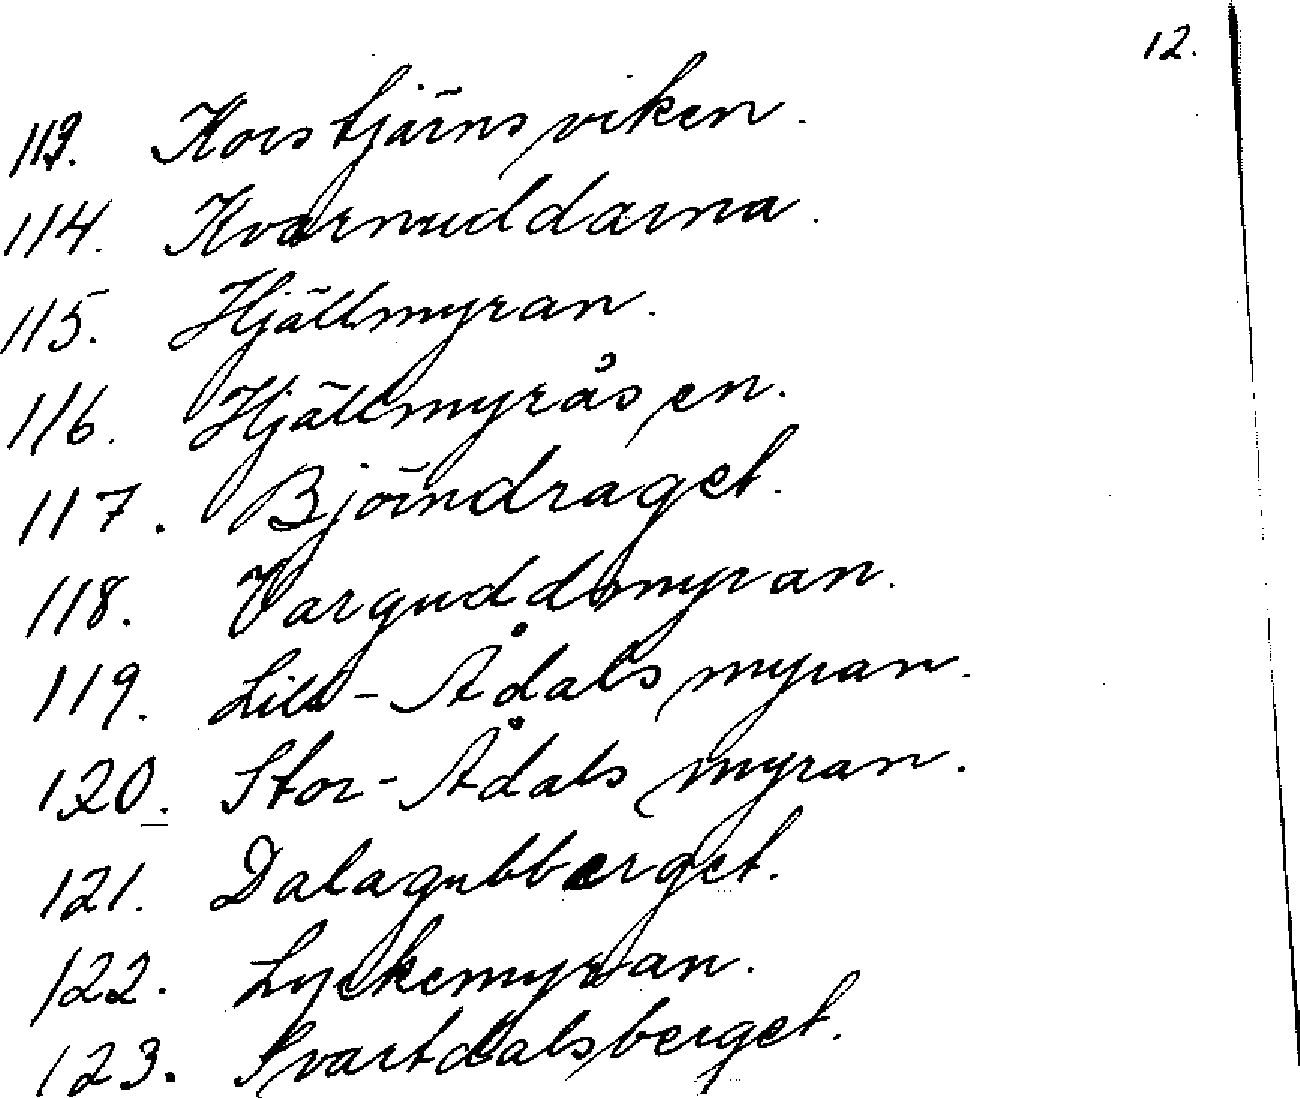 12.
113. Korstjärnsviken.
114. Kvarnuddarna.
115. Hjällmyran.
116. Hjällmyråsen.
117. Björndraget.
118. Varguddsmyran.
119. Lill-Ådalsmyran.
120. Stor-Ådalsmyran.
121. Dalagubberget.
122. Lyckemyran.
123. Svartdalsberget.